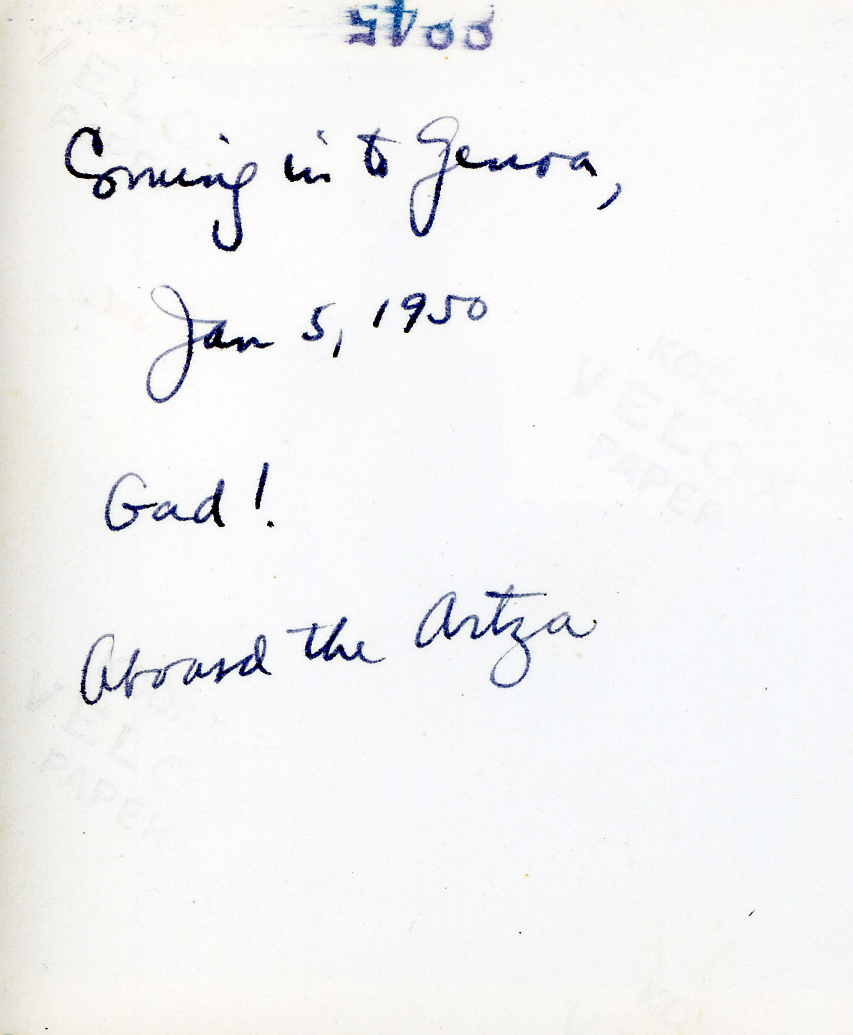 Coming in to Genoa,
Jan 5, 1950
Gad!
Aboard the Artza
KODAK
VELOX
PAPER
VELOX
PAPER